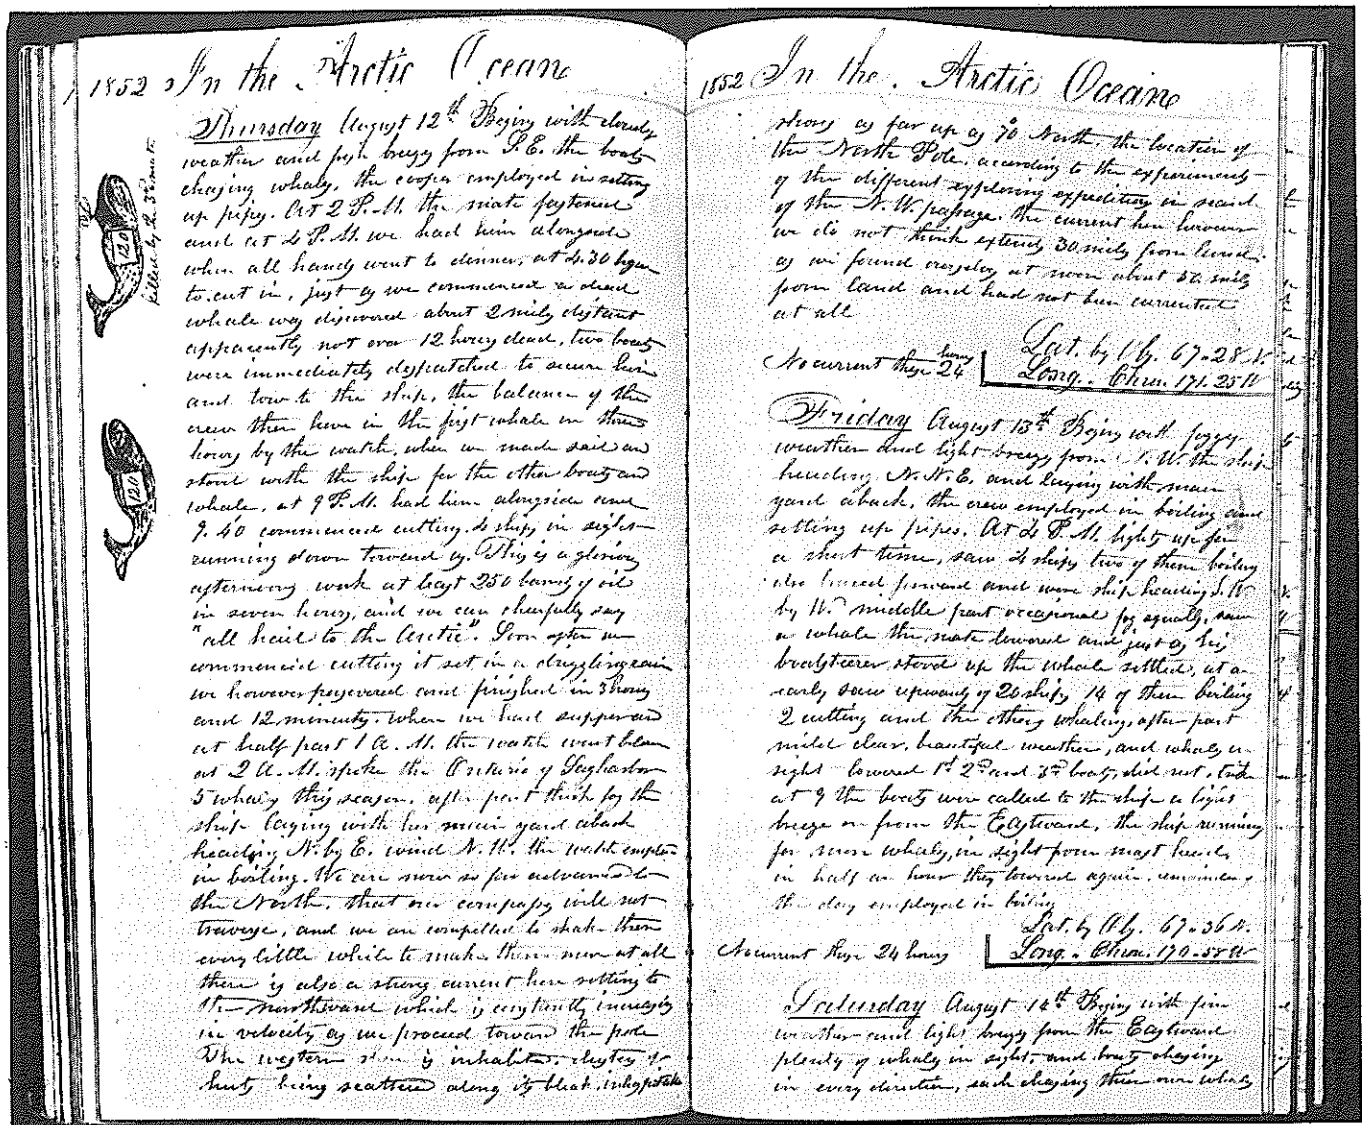 1852 In the Arctic Ocean
Thursday August 12th Begins with cloudy
weather and fresh breezes from S.E. the boats
chasing whales, the cooper employed in setting
up pipes. At 2 P.M. the mate fastened
and at 4 P.M. we had him alongside
when all hands went to dinner, at 4.30 began
to cut in, just as we commenced a dead
whale was discovered about 2 miles distant
apparently not over 12 hours dead, two boats
were immediately dispatched to secure him
and tow to the ship, the balance of the
crew then hove in the first whale in three
hours by the watch, when we made sail and
stood with the ship for the other boats and
whale, at 9 P.M. had him alongside and
9.40 commenced cutting. 4 ships in sight
running down toward us. This is a glorious
afternoons work at least 250 barrels of oil
in seven hours, and we can cheerfully say
"all hail to the Arctic". Soon after we
commenced cutting it set in a drizzling rain
we however persevered and finished in 3 hours
and 12 minutes. when we had supper and
at half past 1 A.M. the watch went below
at 2 A.M. spoke the Ontario of Sagharbor
5 whales this season, after part thick fog the
ship laying with her main yard aback
heading N. by E. wind N.W. the watch employed
in boiling. We are now so far advanced to
the North, that our compasses will not
traverse, and we are compelled to shake them
every little while to make them move at all
there is also a strong current here setting to
the northward which is constantly increasing
in velocity as we proceed toward the pole
The western shore is inhabited, clusters of
huts being scattered along its bleak, inhospitable
120
killed by the 3d mate
120
1852 In the Arctic Ocean
shores as far up as 70° North, the location of
the North Pole, according to the experiments
of the different exploring expeditions in search
of the N.W. passage. the current here however
we do not think extends 30 miles from land.
as we found ourselves at noon about 50 miles
from land and had not been currented
at all
Lat. by Obs. 67..28 N.
No current these 24 hours
Long.. Chron. 171.25 W
Friday August 13th Begins with foggy
weather and light breezes from N.W. the ship
heading N.N.E. and laying with main
yard aback, the crew employed in boiling and
setting up pipes. At 4 P.M. lights up for
a short time, saw 4 ships two of them boiling
also braced forward and wore ship heading S.W
by W. middle part occasional fog squalls, saw
a whale the mate lowered and just as his
boatsteerer stood up the whale settled, at 2
early saw upwards of 20 ships 14 of them boiling
2 cutting and the others whaling, after part
mild clear, beautiful weather, and whales in
sight lowered 1st 2nd and 3rd boats, did not strike
at 9 the boats were called to the ship a light
breeze on from the Eastward, the ship running
for more whales, in sight from mast head,
in half an hour they lowered again, remainder of
the day employed in boiling
Lat. by Obs. 67..36 N.
No current these 24 hours
Long.. Chron. 170..58 W
Saturday August 14th Begins with fine
weather and light breezes from the Eastward
plenty of whales in sight, and boats chasing
in every direction, each chasing their own whales